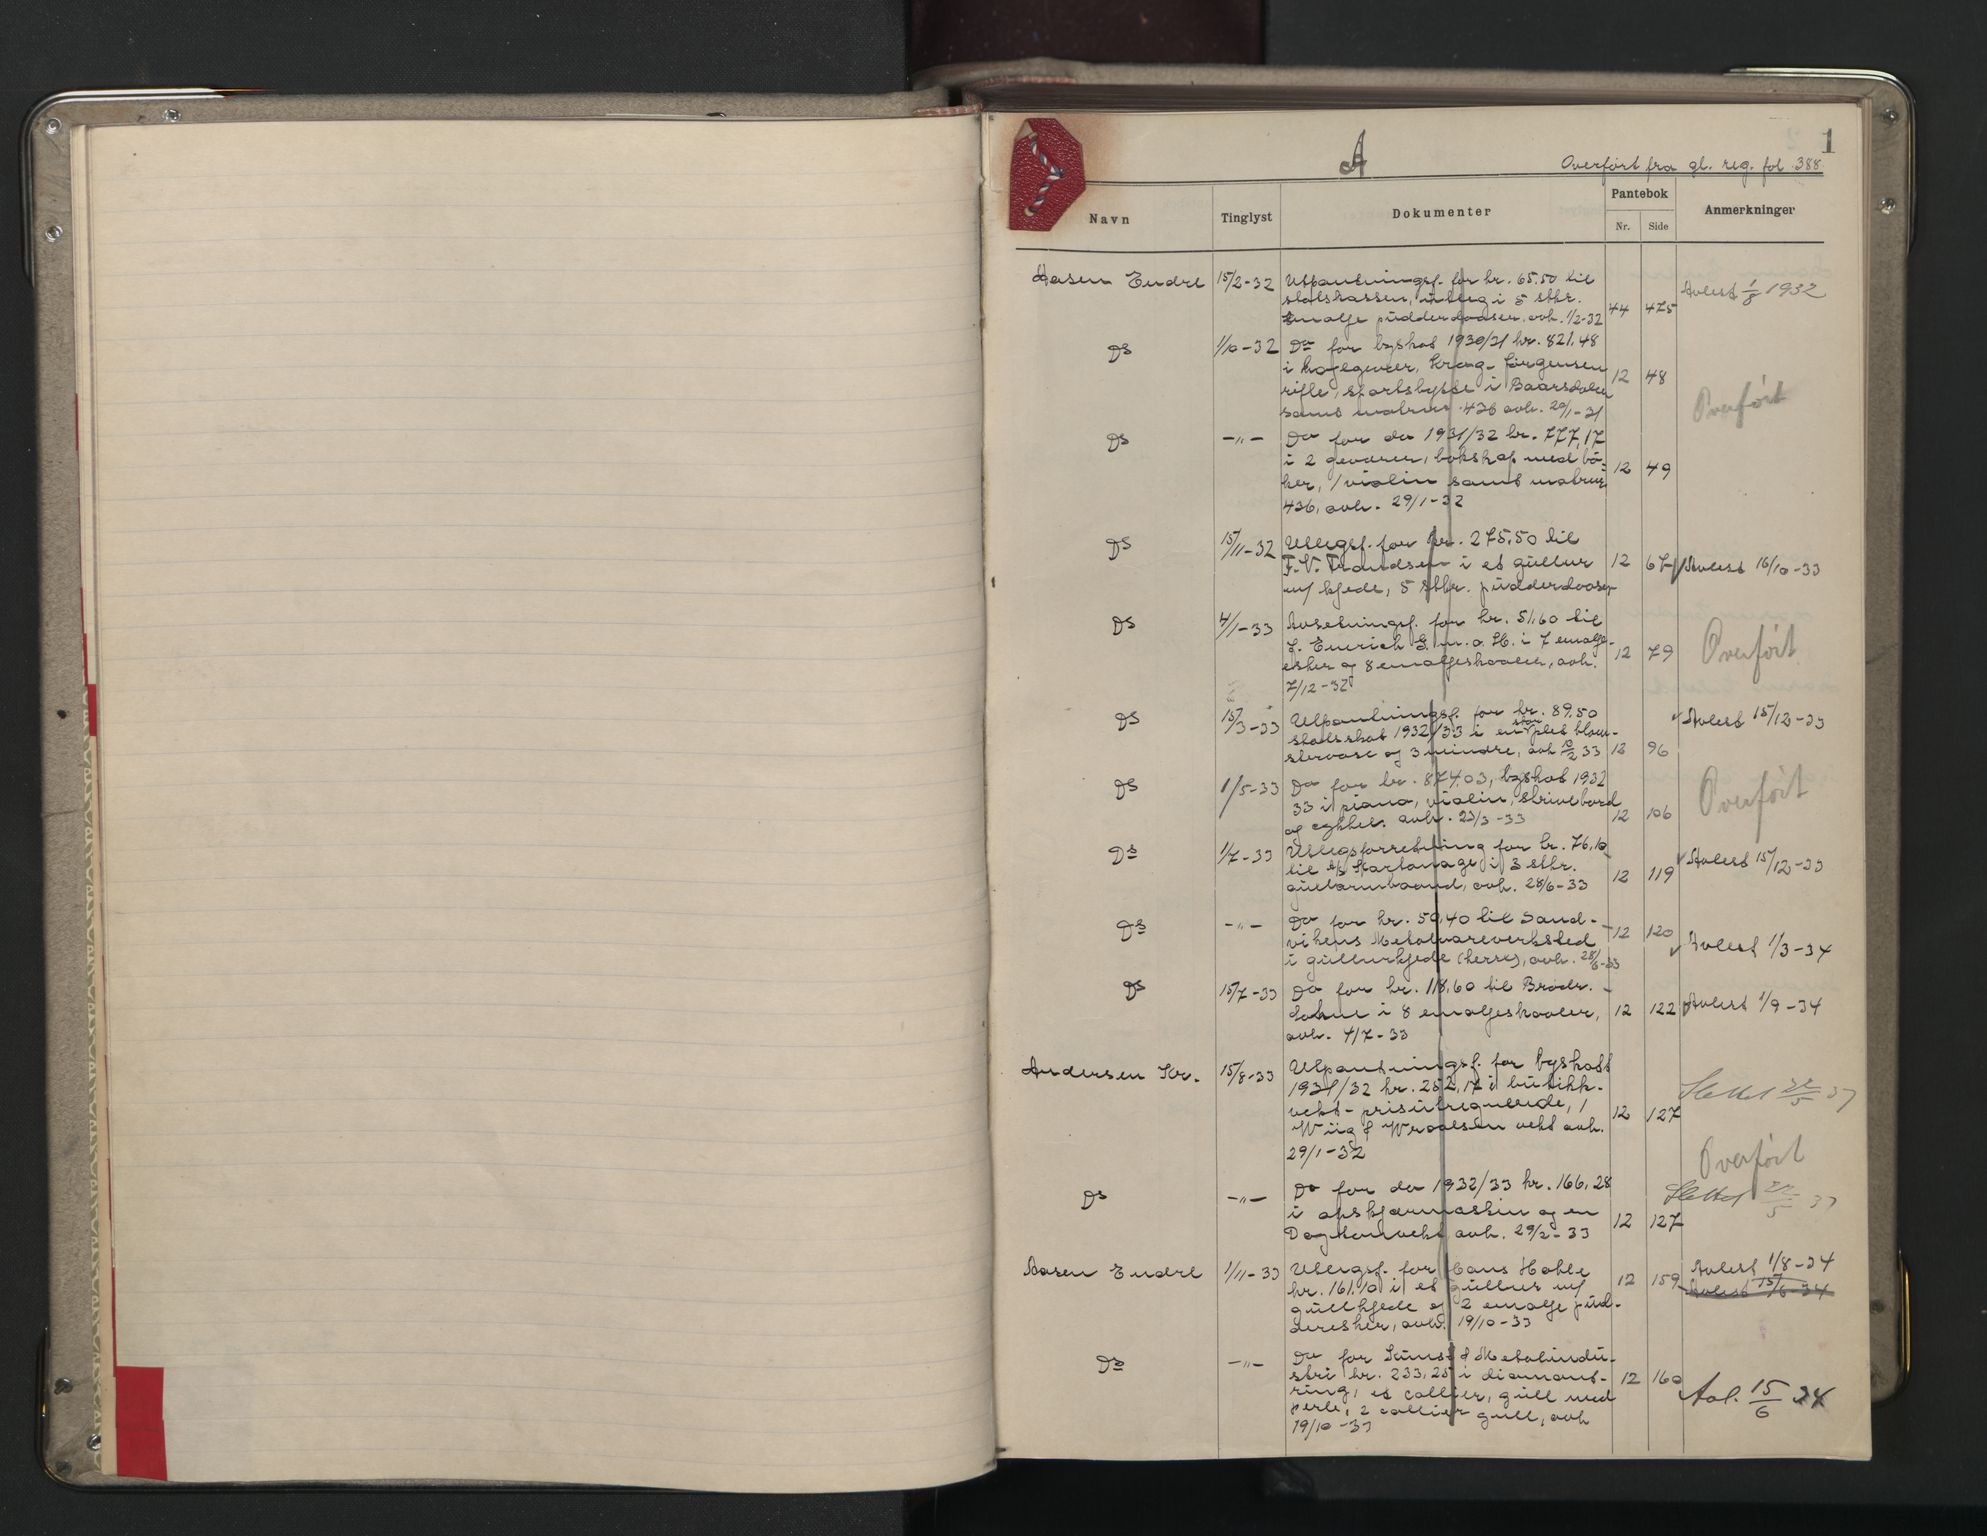 A
1
Overført fra gl. reg. fol 388
Navn
Tinglyst
Dokumenter
Pantebok
Nr.
Side
Anmerkninger
Aasen Endre 15/2-32 Utpantningsf. for kr. 65.50 til
statskassen, utlegg i 5 stkr.
Emalje pudderdaaser, avh. 1/2-32 44 475 Avlest 1/8 1932
Ds 1/10-32 Do for byskat 1930/31 kr. 821.48
i hagegevær, Krag-Jørgensen
rifle, sportshytte i Baarsdalen
samt matrnr. 436 avh. 29/1-31 12 48 Overført
Ds -"- Do for do 1931/32 kr. 777,17
i 2 geværer, bokskap med bø-
ker, 1 violin samt matrnr
436, avh. 29/1-32 12 49
Ds 15/11-32 Utlegsf. for kr. 275,50 til
F.V. Trandsen i et gullur
m/ kjede, 5 stkr. pudderdaaser 12 67 Avlest 16/10-33
Ds 4/1-33 Avsetningsf. for kr. 51.60 til
J. Emrich G.m.o.H. i 7 emalje-
esker og 8 emaljeskaaler, avh.
7/12-32 12 79 Overført
Ds 15/3-33 Utpantningsf. for kr. 89.50
statsskat 1932/33 i en stor plet blom-
stervase og 3 mindre, avh 10/2 33 12 96 Avlest 15/12-33
Ds 1/5-33 Do for kr. 874.03, byskat 1932
33 i piano, violin, skrivebord
og cykkel. avh. 23/3-33 12 106 Overført
Ds 1/7-33 Utlegsforretning for kr. 76,10
til A/S Kartonage i 3 stkr.
gullarmbaand, avh. 28/6-33 12 119 Avlest 15/12-33
Ds -"- Do for kr. 50,40 til Sand-
vikens Metalvareverksted
i gullurkjede (herre), avh. 28/6-33 12 120 Avlest 1/3-34
Ds 15/7-33 Do for kr. 118,60 til Brødr.
Lohne i 8 emaljeskaaler,
avh. 4/7-33 12 122 Avlest 1/9-34
Andersen Kr. 15/8-33 Utpantningsf. for byskatt
1931/32 kr. 252,17 i butikk-
vekt-prisutregnende, 1
Wiig & Wraalsen vekt avh.
29/1-32 12 127 Slettet 22/5 37
Overført
Ds -"- Do for do 1932/33 kr. 166,28
i opskjærmaskin og en
Daytonvekt avh. 29/2-33 12 127 Slettet 22/5 37
Aasen Endre 1/11-33 Utlegsf. for Hans Hahle
kr. 161.10 i et gullur m/
gullkjede og 2 emalje pud-
deresker, avh. 19/10-33 12 159 Avlest 1/8-34
Avlest 15/6-34
Ds -"- Do for Kunst & Metalindu-
stri kr. 233,25 i diamant-
ring, et collier, gull med
perle, 2 collier gull, avh
19/10-33 12 160 Avl. 15/6 34